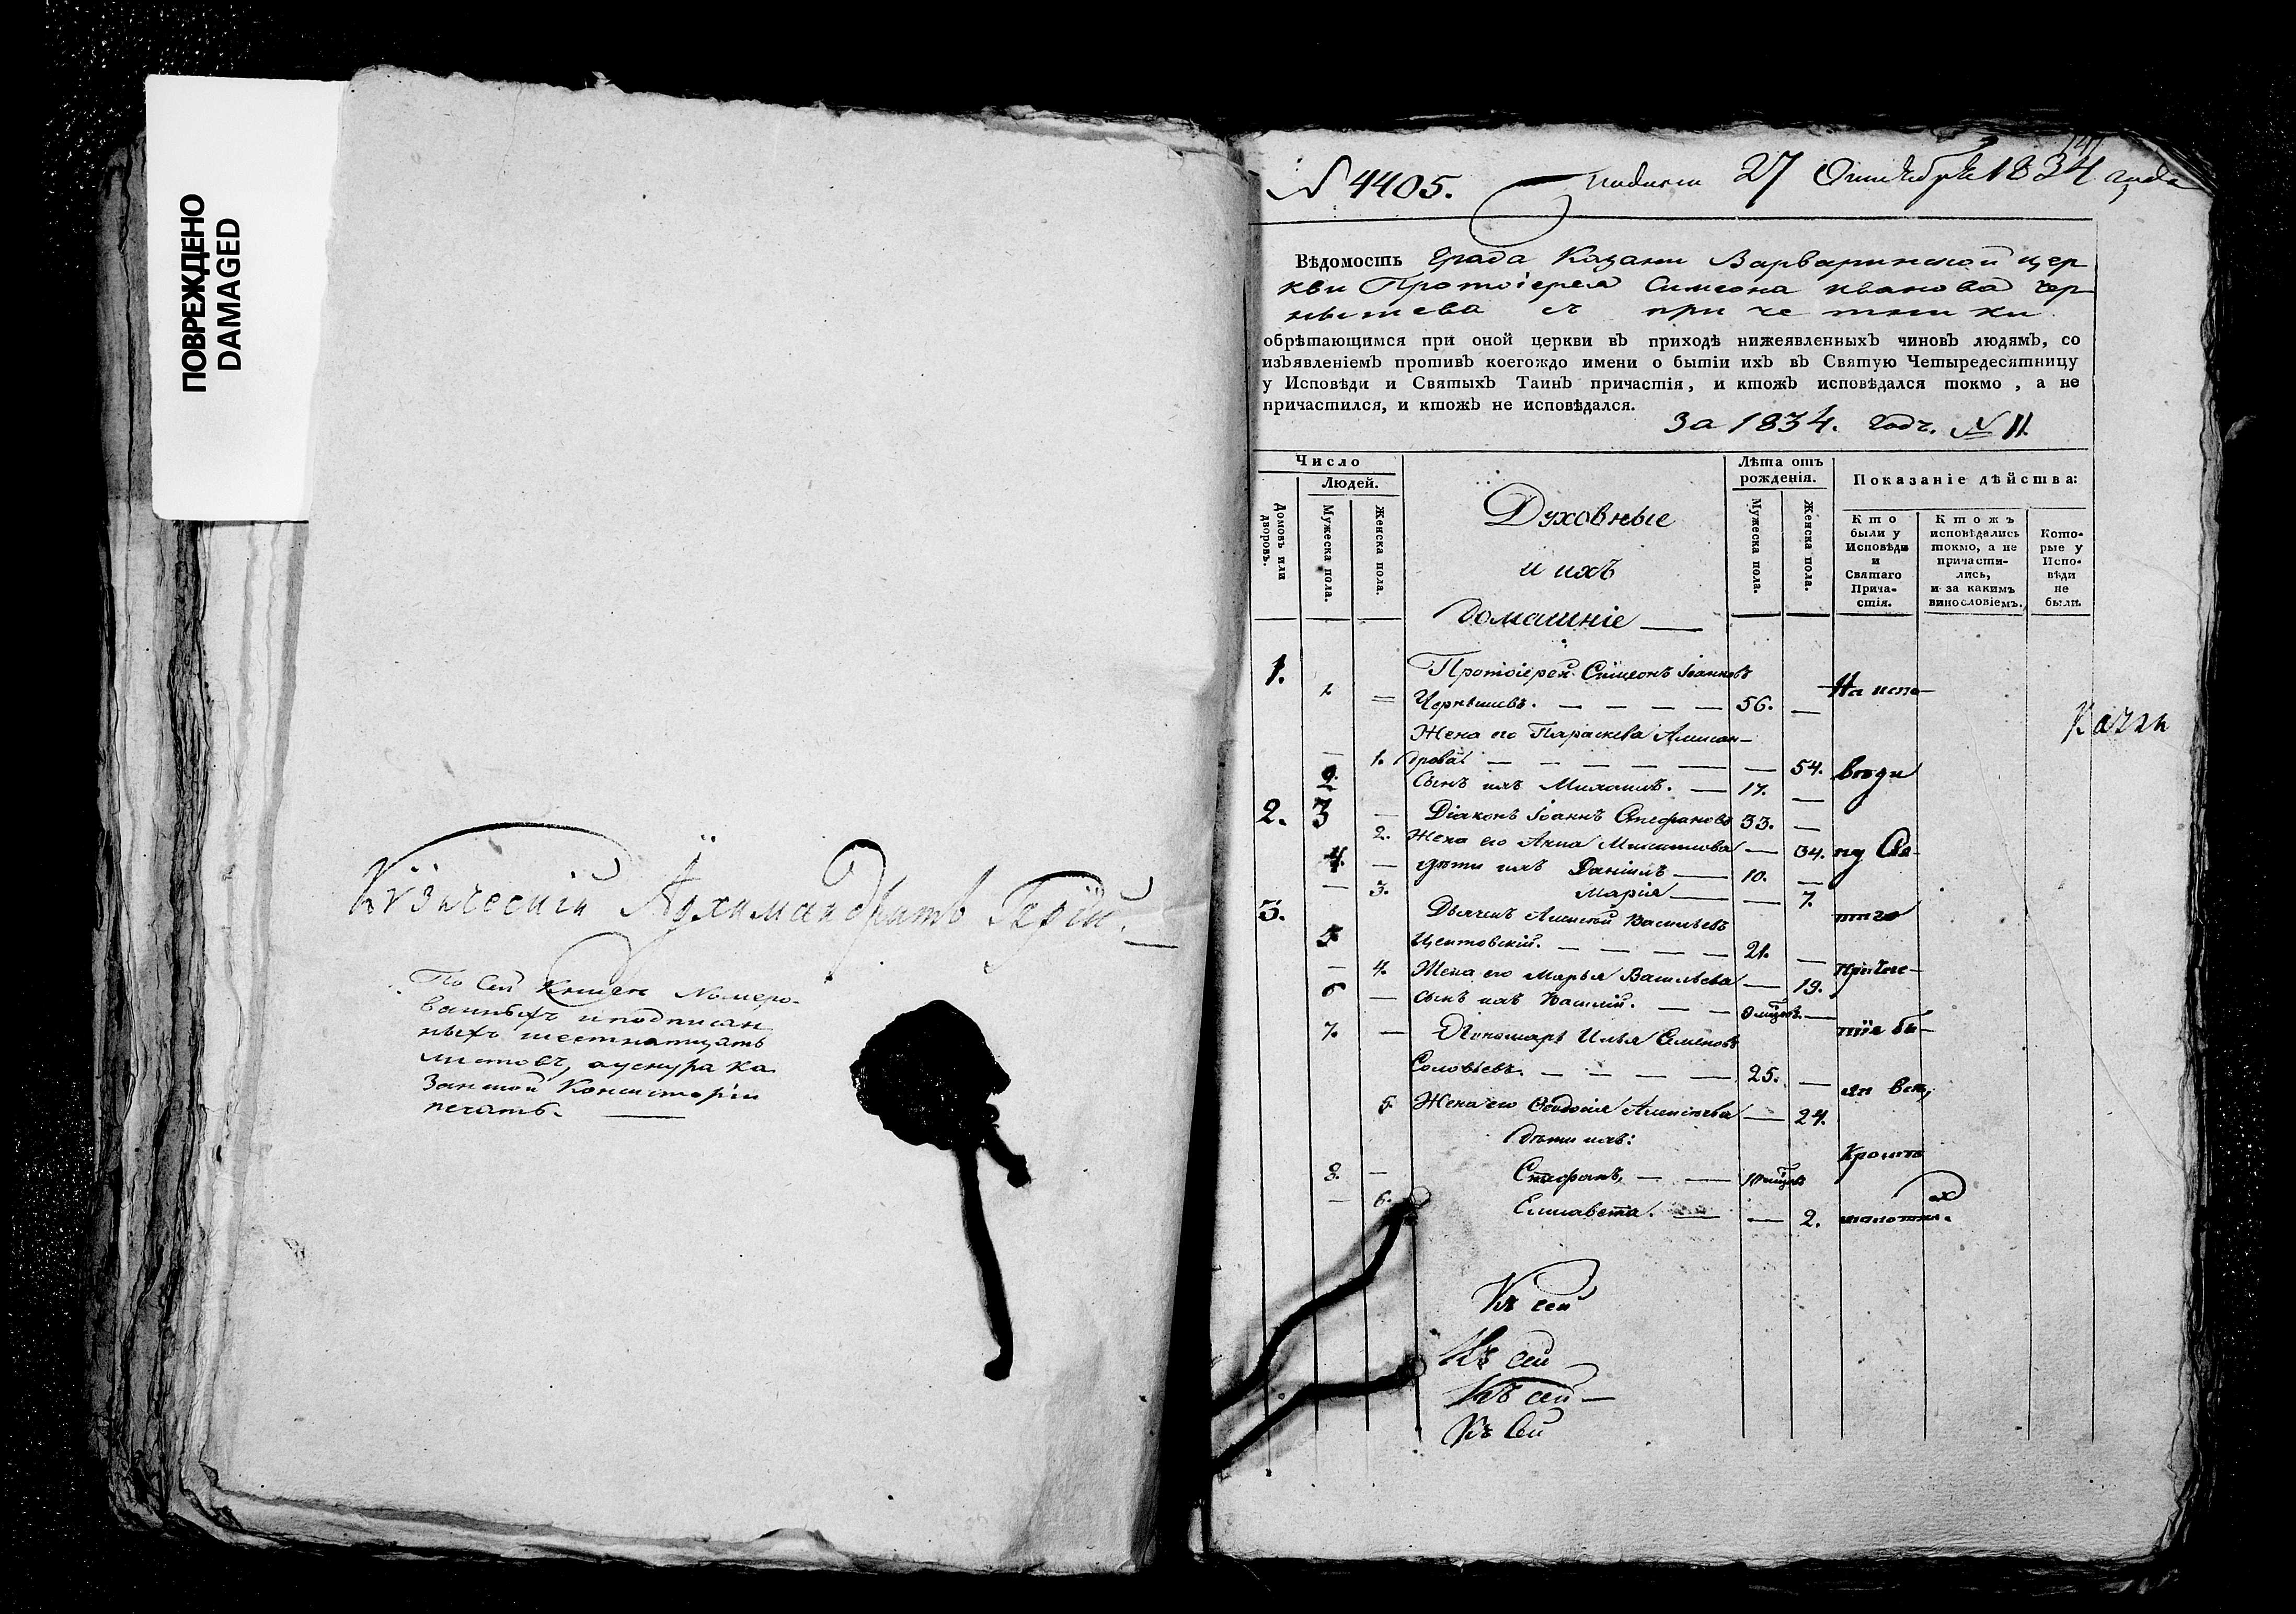 ПОВРЕЖДЕНО
DAMAGED
Кѵзическій Архимандритъ Гурій.
По сей книгѣ номеро-
ванныхъ и подписан
ныхъ шестнатцать
листовъ, а у снура Ка
занской Консисторіи
печать.
N 4405.
27 Октября 1834 года
Вѣдомость Града Казани Варваринской цер
кви Протоіерея Симеона Иванова Чер
нышева съ причетники
обрѣтающимся при оной церкви въ приходѣ нижеявленныхъ чиновъ людямъ, со
изъявленіемъ противъ коегождо имени о бытіи ихъ въ Святую Четыредесятницу
у Исповѣди и Святыхъ Таинъ причастія, и ктожъ исповѣдался токмо, а не
причастился, и ктожъ не исповѣдался.
За 1834. годъ. № 11.
Число
Людей.
Домовъ или дворовъ.
Мужеска пола.
Женска пола.
Духовные
и ихъ
домашніе
Лѣта отъ
рожденія.
Мужеска пола.
Женска пола.
Показаніе дѣйства:
Кто
были у
Исповѣди
и
Святаго
Прича-
стія.
Ктожъ
исповѣдались
токмо, а не
причасти-
лись,
и за какимъ
винословіемъ.
Кото-
рые у
Испо-
вѣди
не
были.
1. Протоіерей Симеонъ Іоанновъ
Чернышевъ. 56. На испо-
Жена его Параскева Алексан-
1. дрова 54. вѣди
2. Сынъ ихъ Михаилъ. 17.
2. 3 Діаконъ Іоаннъ Стефановъ 33.
2. Жена его Анна 34. и у Свя-
4. дѣти ихъ Даніилъ 10.
3. Марія 7. таго
3. Дьячекъ Алексѣй Васильевъ
5 21. Приче-
4. Жена его Марья Васильева 19.
6 Сынъ ихъ Василій.
7. Пономарь Илья Семеновъ
Соловьевъ. 25.
5. Жена его Ѳеодосія Алексѣева 24.
дѣти ихъ:
8. Стефанъ,
6. Елисавета. 2.
Кромѣ
Казан
Къ сей
Къ сей
Къ сей
Къ сей